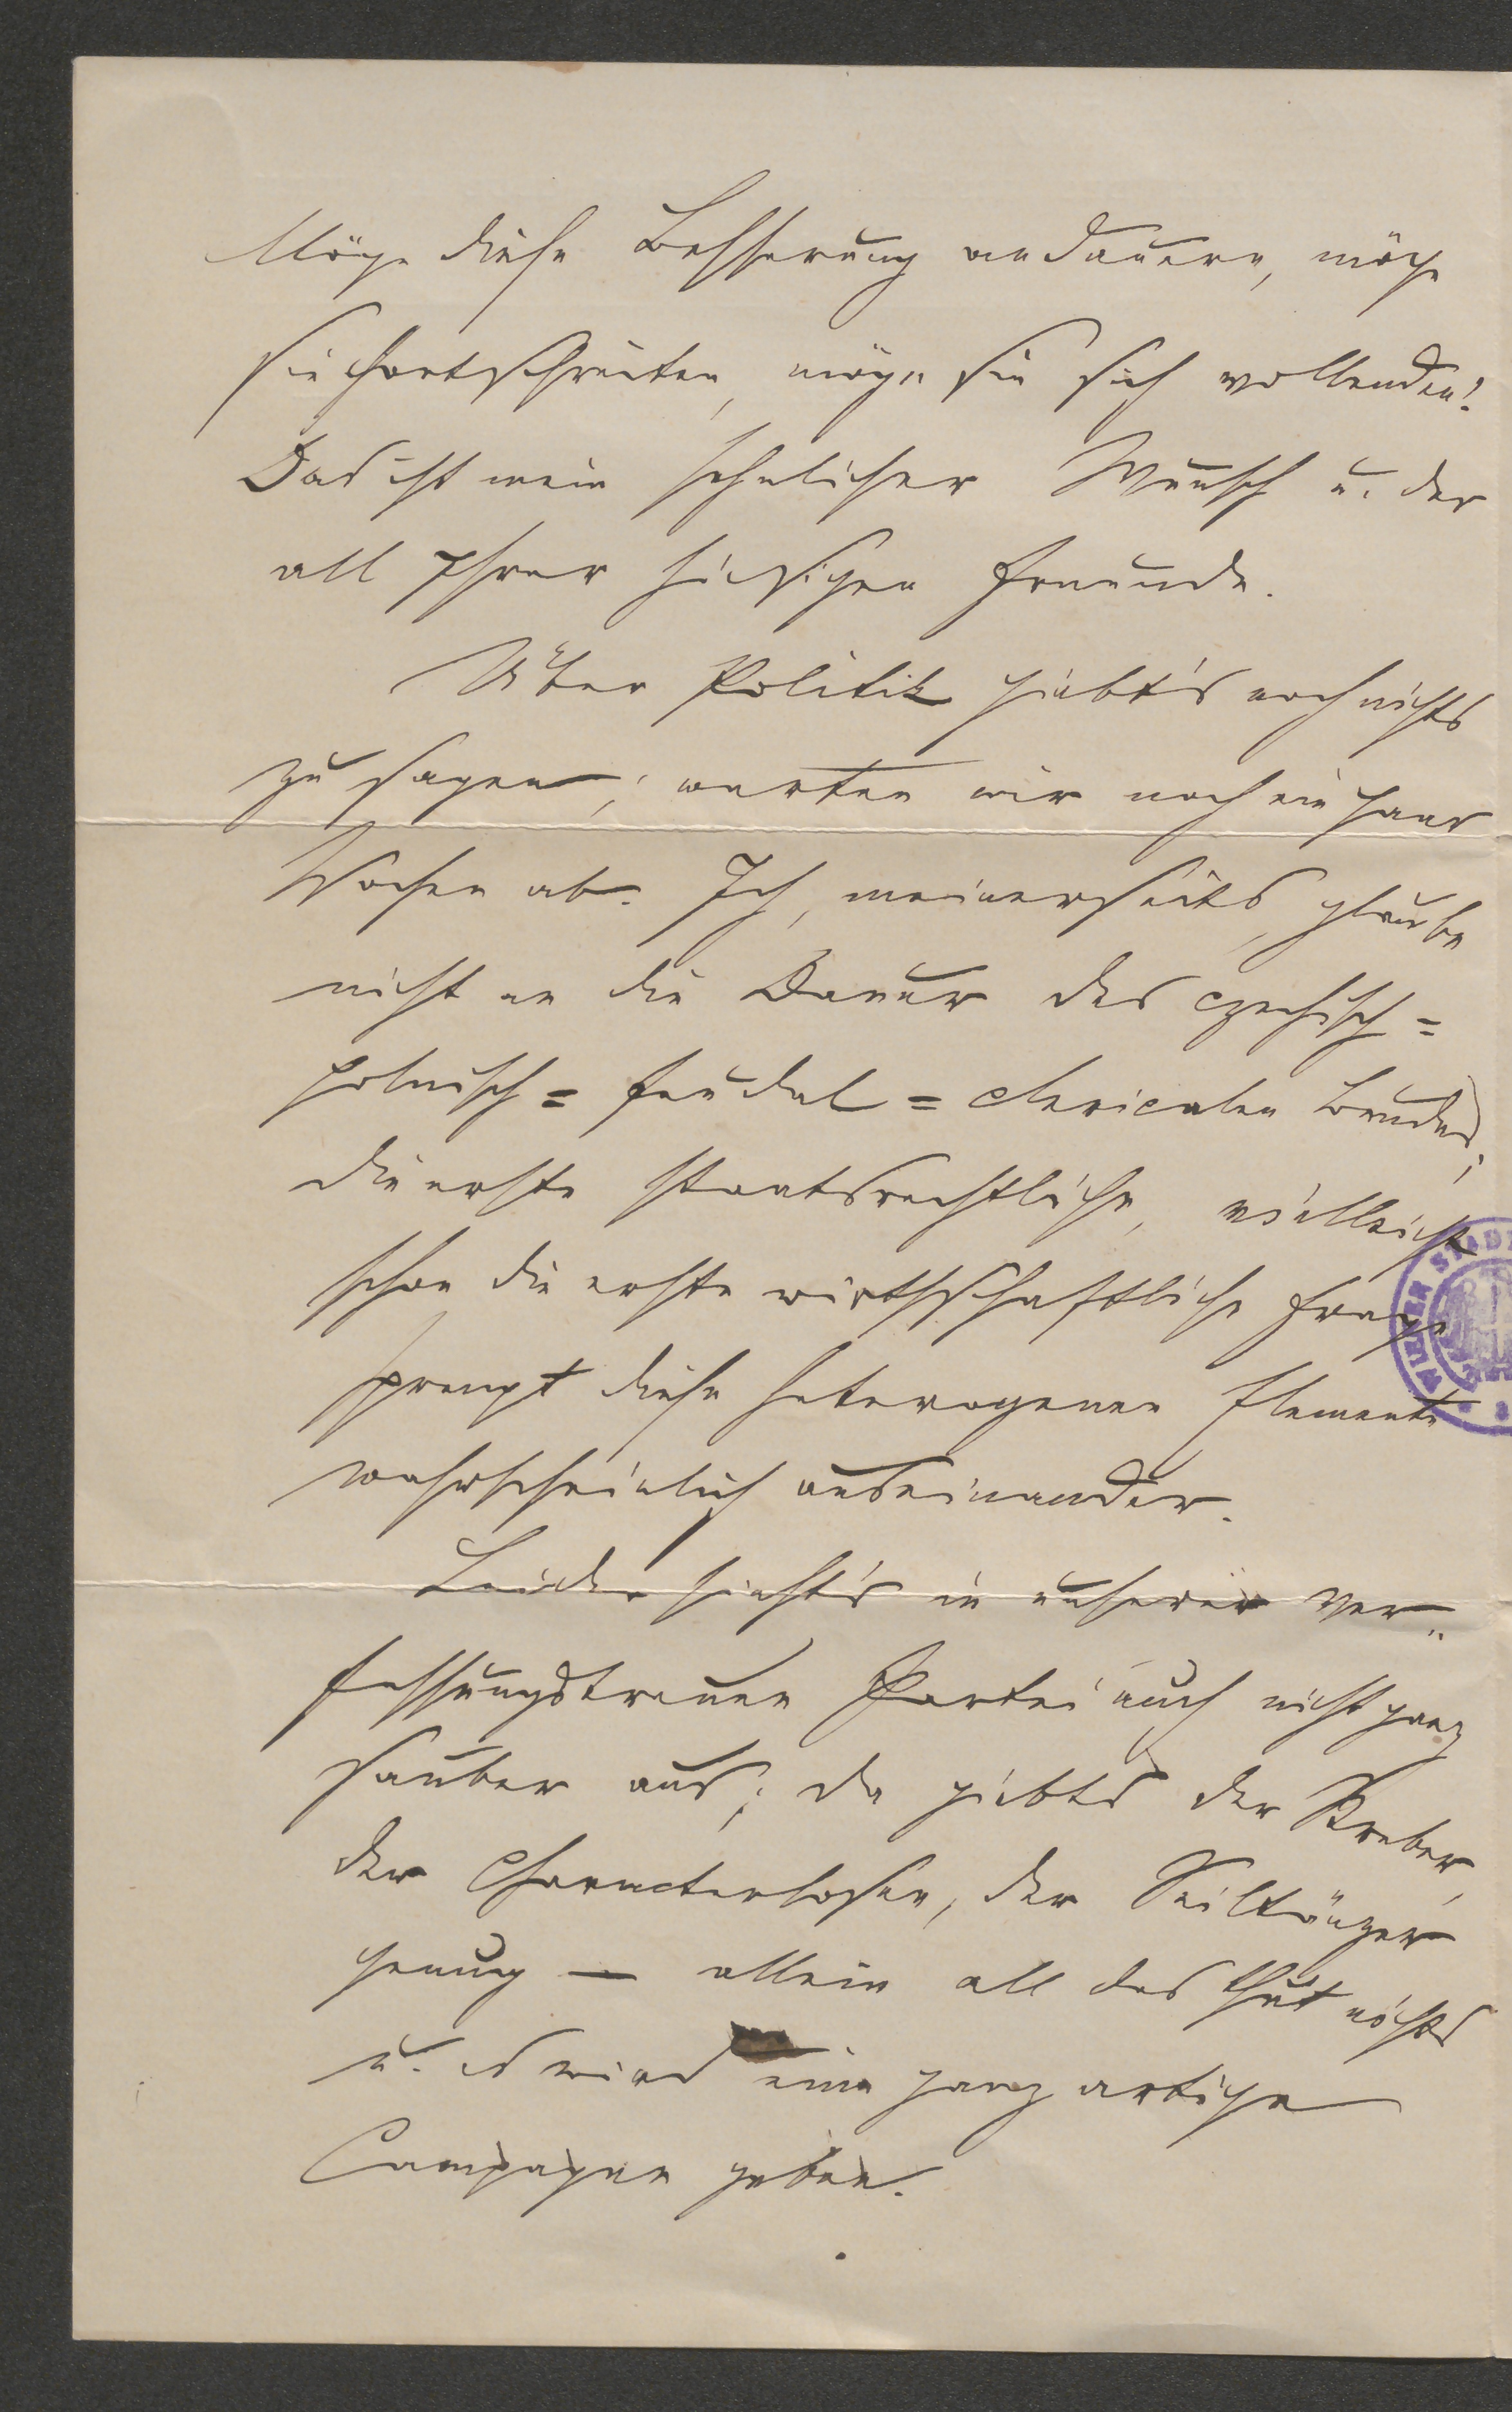 Möge diese Besserung andauern, möge
sie fortschreiten, möge sie sich vollenden!
Das ist mein sehnlicher Wunsch u. der
all Ihrer hiesigen Freunde.
Über Politik giebt's noch nichts
zu sagen; warten wir noch ein paar
Wochen ab. Ich, meinerseits, glaube
nicht an die Dauer des czechisch=
polnisch=feudal=clericalen Bundes;
die erste staatsrechtliche, vielleicht
schon die erste wirthschaftliche Frage
sprengt diese heterogenen Elemente
wahrscheinlich auseinander.
Leider sieht's in unserer ver„
fassungstreuen Partei auch nicht ganz
sauber aus; da giebts der Streber,
der Characterlosen, der Seiltänzer
genug — allein all das thut nichts
u. es wird eine ganz artige
Campagne geben.
WIENER STADT